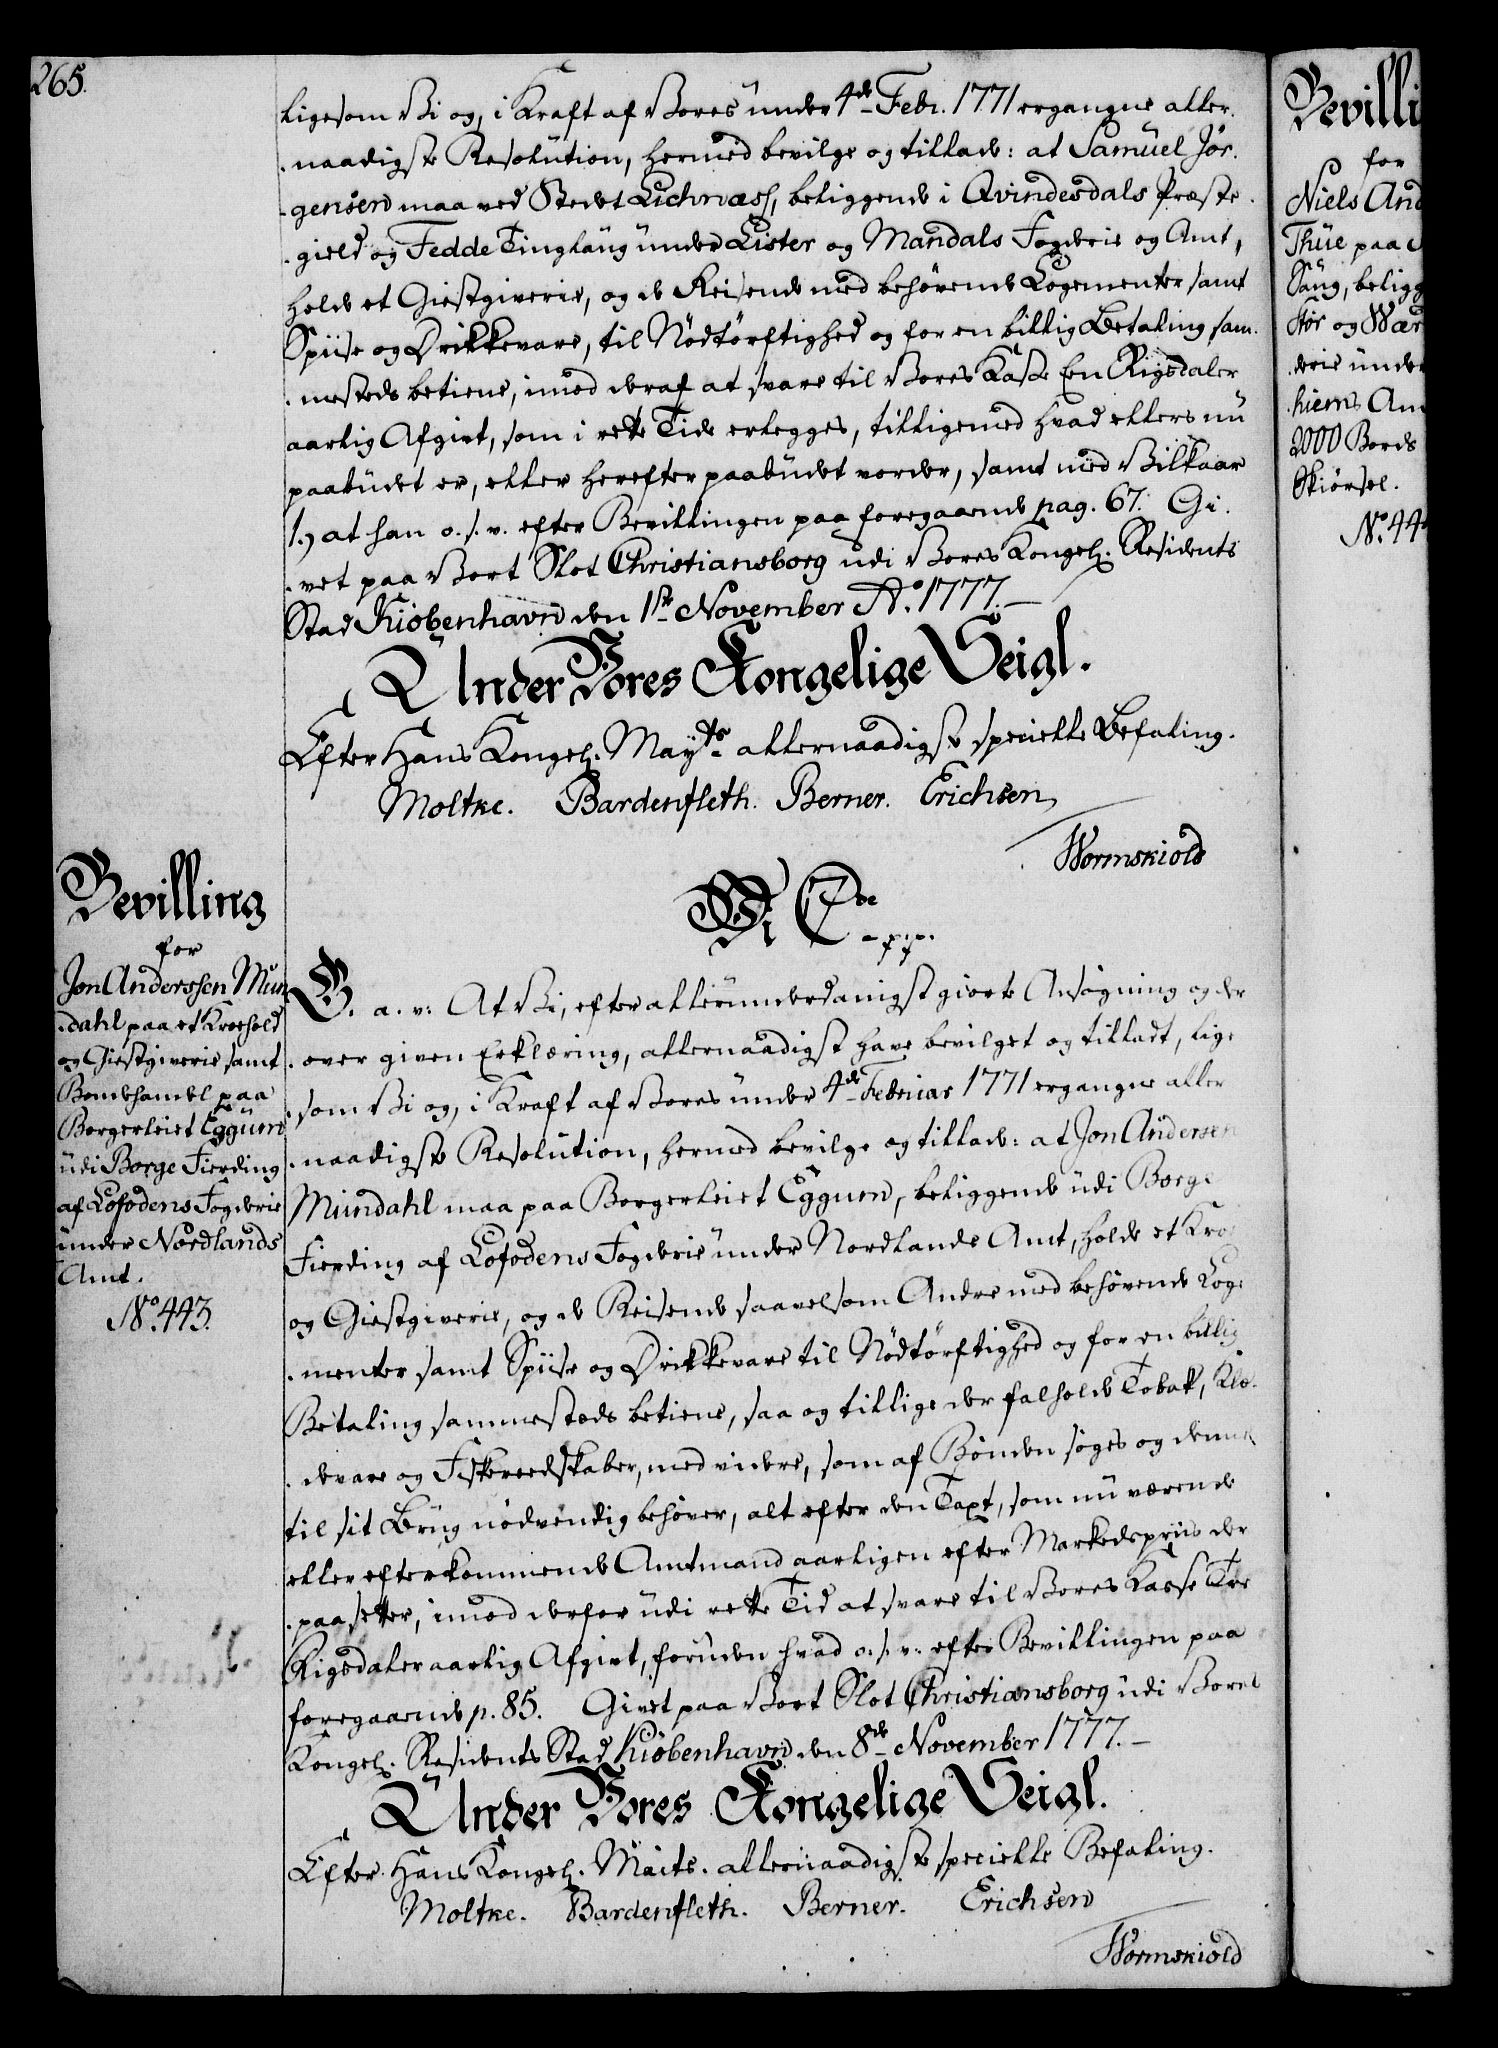 265.
ligesom Vi og, i Kraft af Vores under 4de Febr. 1771 ergangne aller-
naadigste Resolution, hermed bevilge og tillade: at Samuel Jør-
gensen maa ved Stedet Lichnæss, beliggende i Qvindesdals Præste-
gield og Fedde Tinglaug under Lister og Mandals Fogderie og Amt,
holde et Giestgiverie, og de Reisende med behøvende Logementer samt
Spiise og Drikkevare, til Nødtørftighed og for en billig Betaling sam-
mesteds betiene, imod deraf at svare til Vores Kasse Een Rigsdaler
aarlig Afgivt, som i rette Tide erlegges, tilligemed hvad ellers nu
paabudet er, eller herefter paabudet vorder, samt med Vilkaar
1.) at han o. s. v. efter Bevillingen paa foregaaende pag. 67. Gi-
vet paa Vort Slot Christiansborg udi Vores Kongel. Residents
Stad Kiøbenhavn den 1ste November Ao. 1777.
Under Vores Kongelige Seigl.
Efter Hans Kongel. Mayts. allernaadigste specielle Befaling.
Moltke. Bardenfleth. Berner. Erichsen
Wormskiold
Bevilling
for
Jon Anderssen Mun-
dahl paa et Kroehold
og Giestgiverie samt
Bondehandel paa
Borgerleiet Eggum
udi Borge Fierding
af Lofodens Fogderie
under Nordlands
Amt.
No. 443.
Wi C 7de p. p.
G. a. v: At Vi, efter allerunderdanigst giorte Ansøgning og der-
over given Erklæring, allernaadigst have bevilget og tilladt, lige-
som Vi og, i Kraft af Vores under 4de Februar 1771 ergangne aller-
naadigste Resolution, hermed bevilge og tillade: at Jon Andersen
Mundahl maa paa Borgerleiet Eggum, beliggende udi Borge
Fierding af Lofodens Fogderie under Nordlands Amt, holde et Kro-
og Giestgiverie, og de Reisende saavelsom Andre med behøvende Loge-
menter samt Spiise og Drikkevare til Nødtørftighed og for en billig
Betaling sammesteds betiene, saa og tillige der falholde Tobak, Klæ-
devare og Fiskereedskaber, med videre, som af Bonden søges og denne
til sit Brug nødvendig behøver, alt efter den Taxt, som nu værende
eller efterkommende Amtmand aarligen efter Markedspriis der-
paa setter, imod derfor udi rette Tid at svare til Vores Kasse Tre
Rigsdaler aarlig Afgivt, foruden hvad o. s. v. efter Bevillingen paa
foregaaende p. 85. Givet paa Vort Slot Christiansborg udi Vores
Kongel. Residents Stad Kiøbenhavn den 8de November 1777.
Under Vores Kongelige Seigl.
Efter Hans Kongel. Maits. allernaadigste specielle Befaling.
Moltke. Bardenfleth. Berner. Erichsen
Wormskiold
Bevilli
for
Niels And
Thue paa
Saug, belig
Stør og Vær
derie under
hiems Am
2000 Bords
Skiørsel.
No. 44